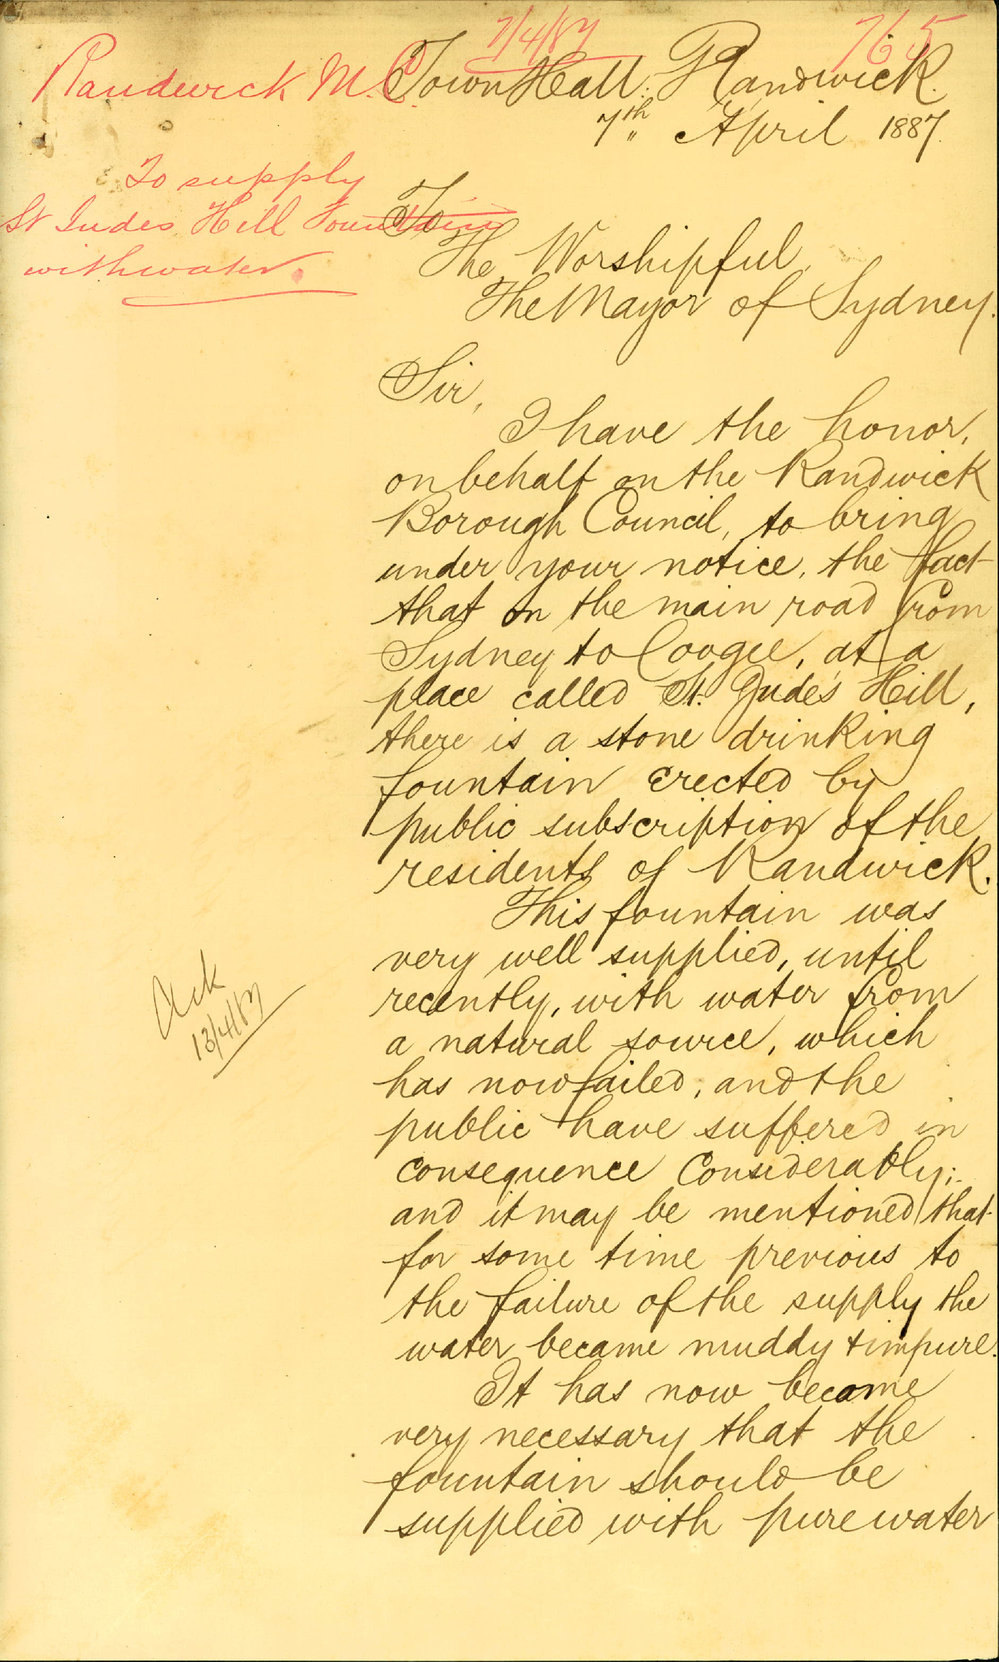 7/4/87
765
Randwick M.C.
Town Hall. Randwick.
7th April 1887.
To supply
St Judes Hill Fountain
with water.
To
The Worshipful
The Mayor of Sydney.
Sir,
I have the honor,
on behalf on the Randwick
Borough Council, to bring
under your notice, the fact
that on the main road from
Sydney to Coogee, at a
place called St. Jude's Hill,
there is a stone drinking
fountain erected by
public subscription of the
residents of Randwick.
This fountain was
very well supplied, until
recently, with water from
a natural source, which
has now failed, and the
public have suffered in
consequence considerably;
and it may be mentioned that
for some time previous to
the failure of the supply the
water became muddy & impure.
It has now become
very necessary that the
fountain should be
supplied with pure water
Ack
13/4/87